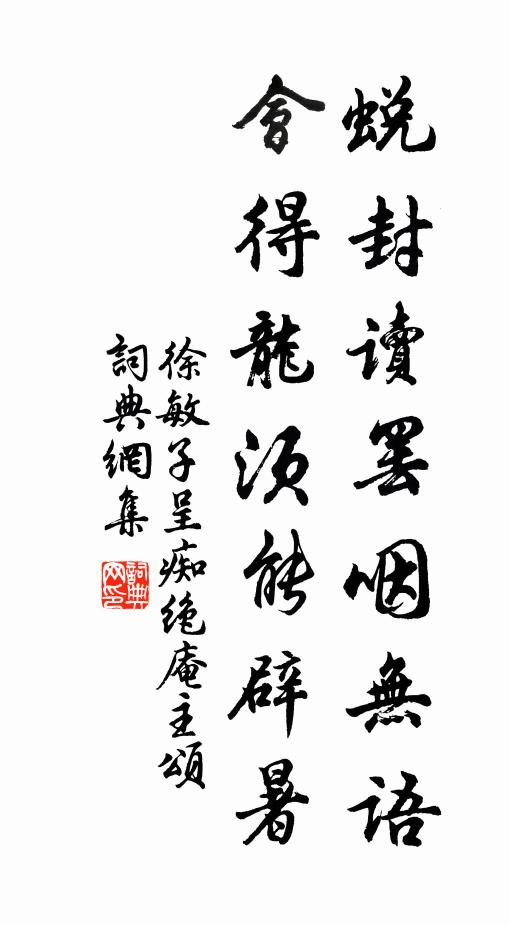 蜕封讀罢咽無語
會得龍須能辟暑
徐敏子呈痴绝庵主頌
詞典網集
詞典网印